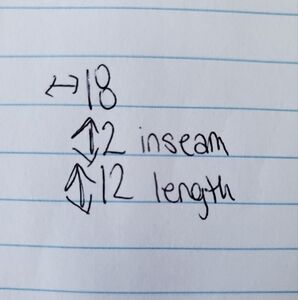 ↔18
↕2 inseam
↕12 length